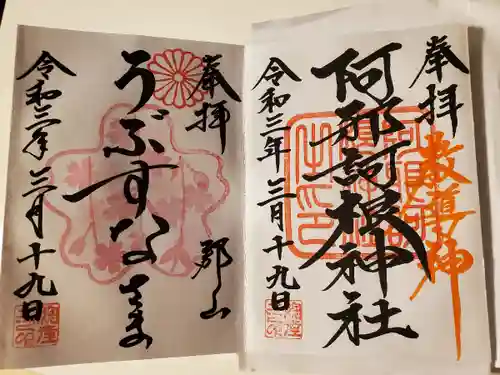 奉拝
阿邪訶根神社
令和三年三月十九日
奉拝
郡山
うぶすなさま
令和三年三月十九日